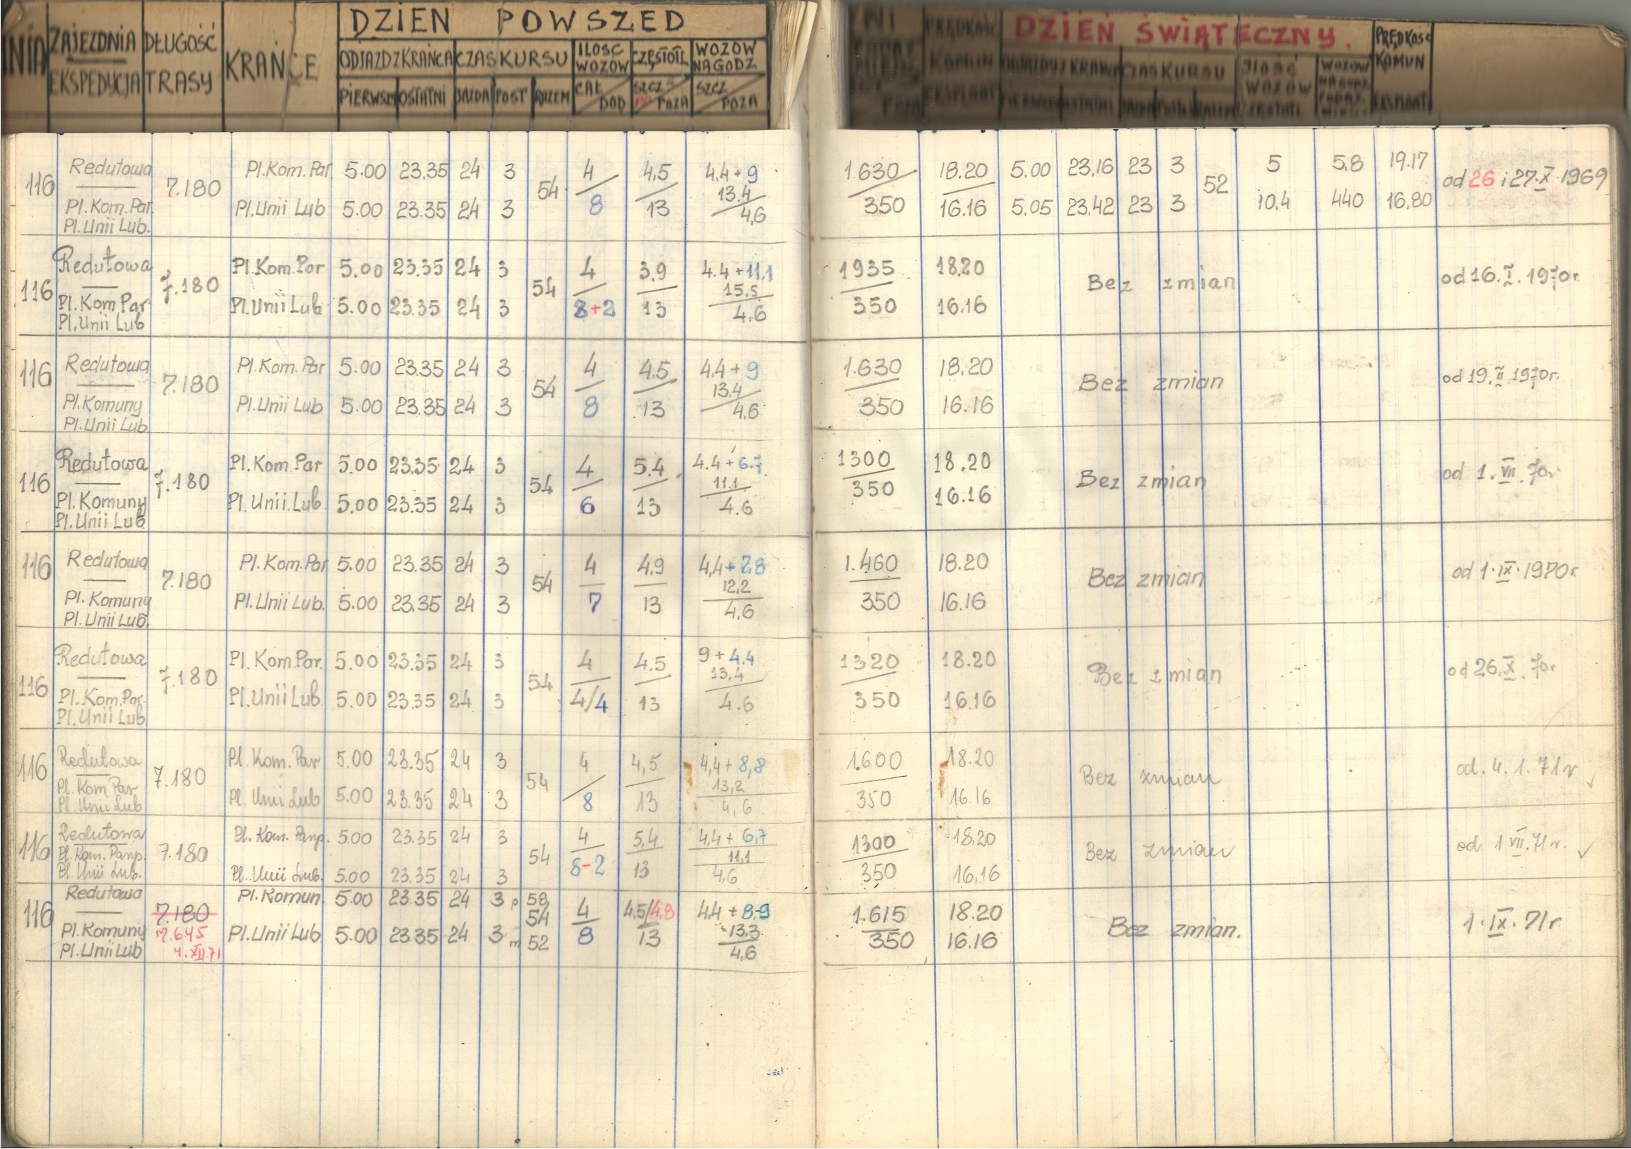 DZIEŃ POWSZED
NIA ZAJEZDNIA DŁUGOŚĆ KRAŃCE ODJAZD Z KRAŃCA CZAS KURSU ILOŚC WOZÓW CZĘSTOTL WOZÓW NA GODZ
EKSPEDYCJA TRASY PIERWSZ OSTATNI JAZDA POST RAZEM CAŁ DOD SZCZ POZA SZCZ POZA
DZIEŃ ŚWIĄTECZNY.
PRĘDKOŚĆ KOMUN
EKSPLOAT.
116 Redutowa 7.180 Pl.Kom.Par 5.00 23.35 24 3 54 4 4,5 4,4+9 1.630 18.20 5.00 23.16 23 3 52 5 5,8 19.17 od 26 i 27.X.1969
13.4
Pl.Kom.Par. Pl.Unii Lub 5.00 23.35 24 3 8 13 4,6 350 16.16 5.05 23.42 23 3 10,4 440 16,80
Pl.Unii Lub.
116 Redutowa 7.180 Pl.Kom.Par 5.00 23.35 24 3 54 4 3,9 4.4+11.1 1935 18.20 Bez zmian od 16.I.1970r.
15.5
Pl.Kom Par Pl.Unii Lub 5.00 23.35 24 3 8+2 13 4.6 350 16.16
Pl.Unii Lub
116 Redutowa 7.180 Pl.Kom.Par 5.00 23.35 24 3 54 4 4.5 4,4+9 1.630 18.20 Bez zmian od 19.II 1970r.
13.4
Pl.Komuny Pl.Unii Lub 5.00 23.35 24 3 8 13 4,6 350 16.16
Pl.Unii Lub
116 Redutowa 7.180 Pl.Kom.Par 5.00 23.35 24 3 54 4 5.4 4.4+6.7 1300 18.20 Bez zmian od 1.VII.70r.
11.1
Pl.Komuny Pl.Unii.Lub. 5.00 23.35 24 3 6 13 4.6 350 16.16
Pl.Unii Lub
116 Redutowa 7.180 Pl.Kom.Par 5.00 23.35 24 3 54 4 4,9 4,4+7,8 1.460 18.20 Bez zmian od 1.IX.1970r.
12,2
Pl.Komuny Pl.Unii Lub. 5.00 23.35 24 3 7 13 4,6 350 16.16
Pl.Unii Lub.
116 Redutowa 7.180 Pl.Kom.Par. 5.00 23.35 24 3 54 4 4.5 9+4.4 1320 18.20 Bez zmian od 26.X.70r.
13,4
Pl.Kom.Par. Pl.Unii Lub 5.00 23.35 24 3 4/4 13 4.6 350 16.16
Pl.Unii Lub
116 Redutowa 7.180 Pl. Kom. Par 5.00 23.35 24 3 54 4 4,5 4,4+8,8 1600 18.20 Bez zmian od. 4.1.71r
13,2
Pl. Kom Par Pl. Unii Lub 5.00 23.35 24 3 8 13 4,6 350 16.16
Pl. Unii Lub
116 Redutowa 7.180 Pl. Kom. Parp. 5.00 23.35 24 3 54 4 5,4 4,4+6,7 1300 18.20 Bez zmian od 1 VII.71r.
11,1
Pl. Kom. Parp. Pl. Unii Lub. 5.00 23.35 24 3 8-2 13 4,6 350 16,16
Pl. Unii Lub.
116 Redutowa 7.180 Pl.Komun. 5.00 23.35 24 3 p 58 4 4,5/4,8 4,4+8,9 1.615 18.20 Bez zmian. 1.IX.71r
54 13.3
Pl.Komuny 7.645 Pl.Unii Lub 5.00 23.35 24 3 m 52 8 13 4,6 350 16.16
Pl.Unii Lub 4.XII.71